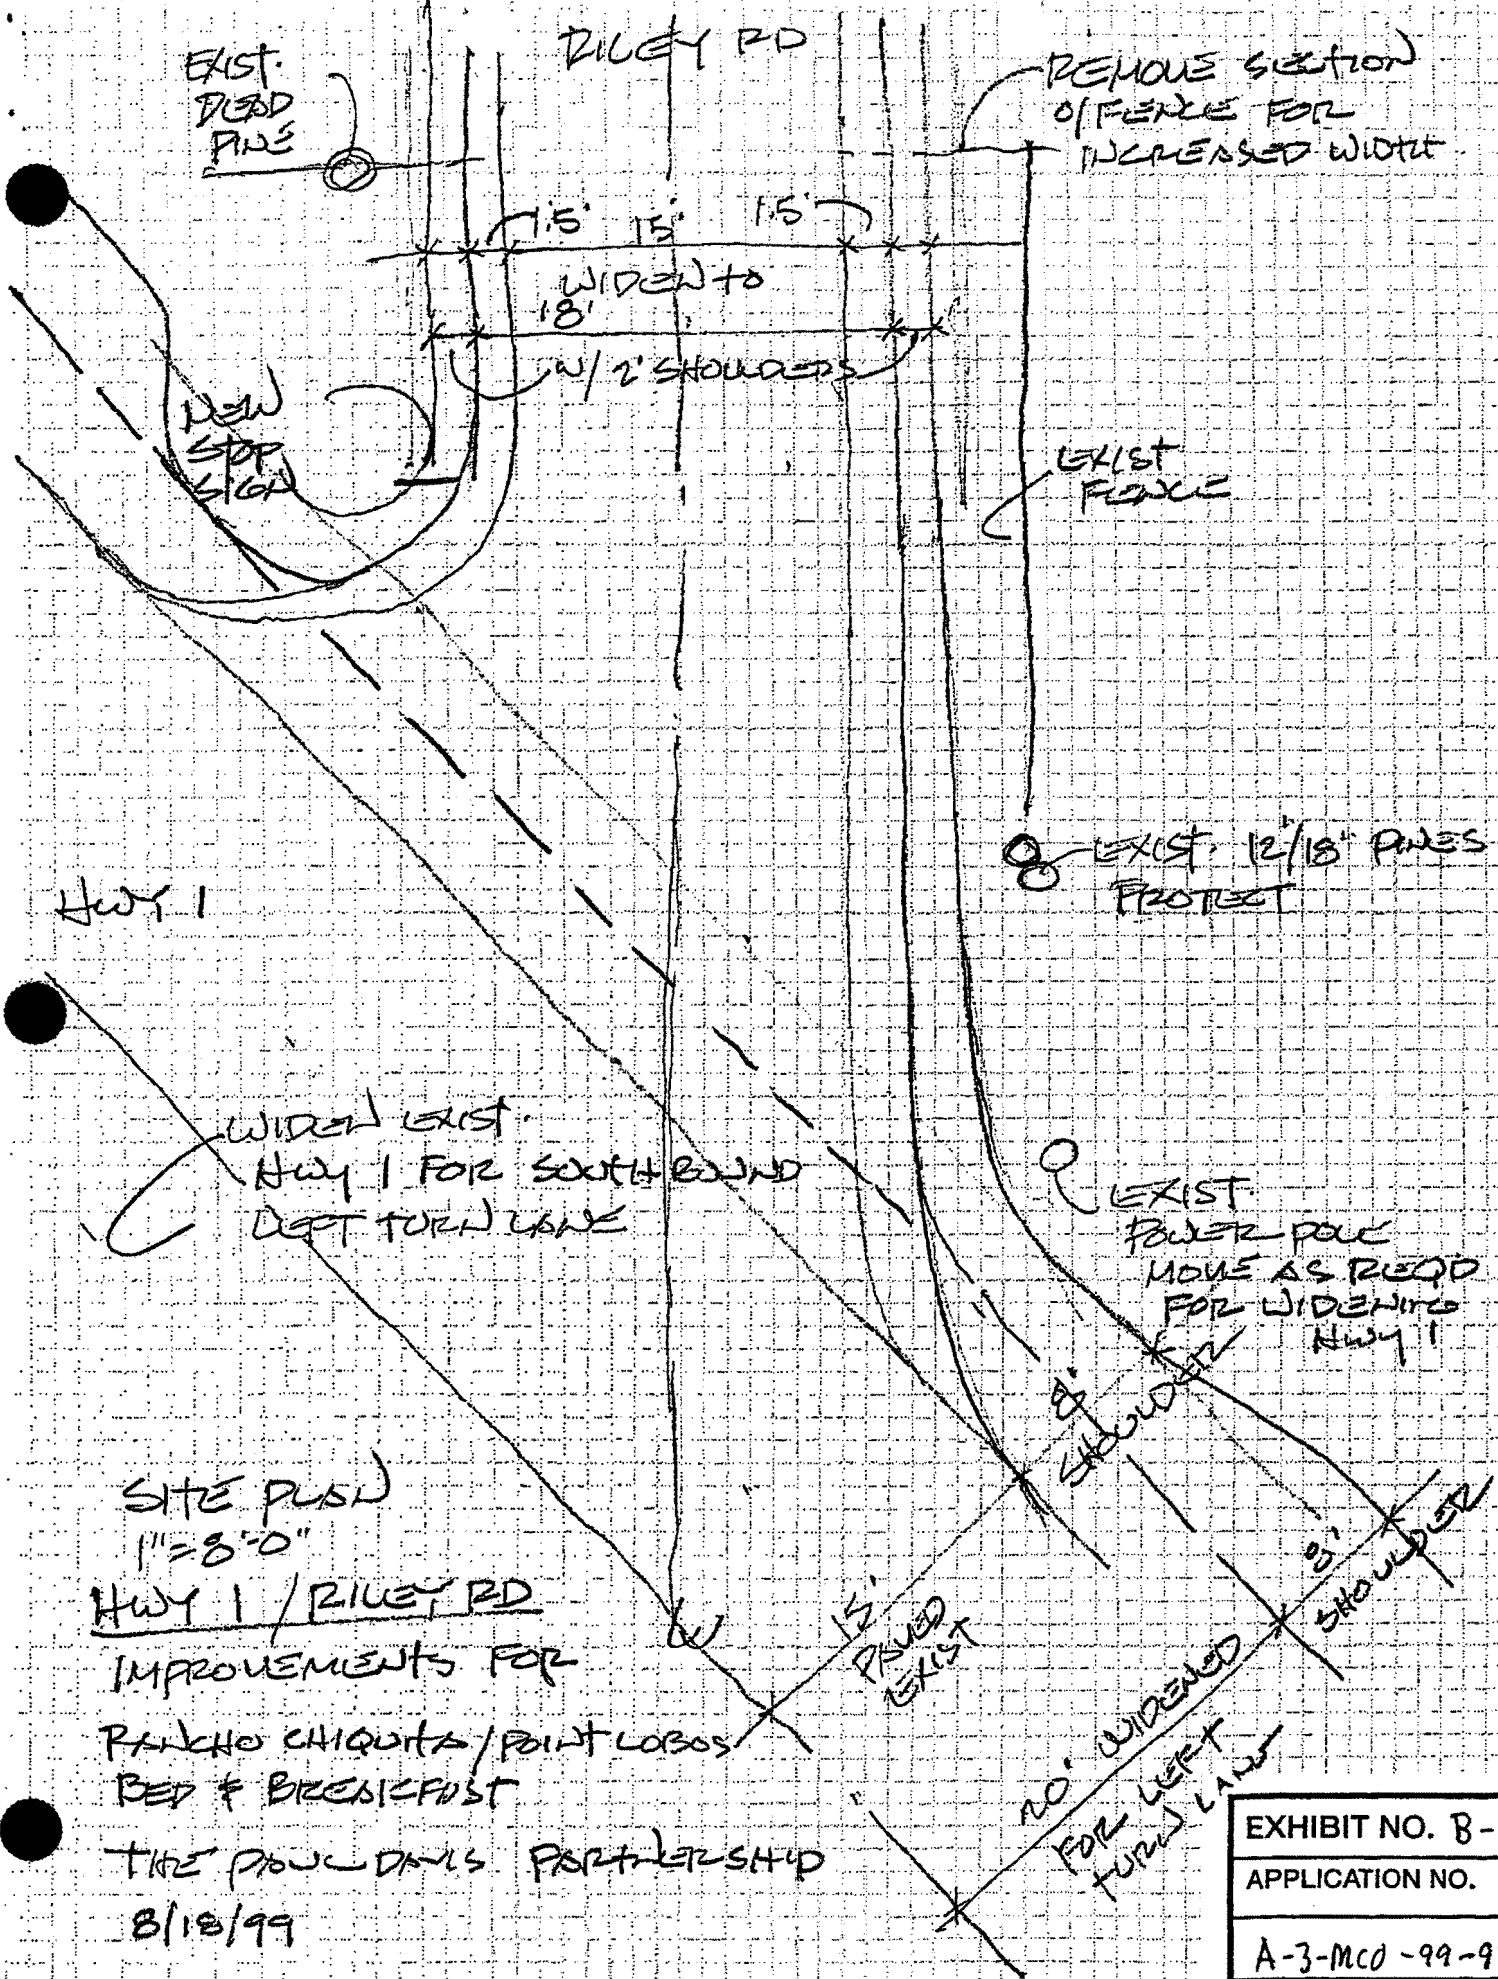 RILEY RD
EXIST.
DEAD
PINE
REMOVE SECTION
O/FENCE FOR
INCREASED WIDTH
1.5' 15' 1.5'
WIDEN TO
18'
W/ 2' SHOULDERS
NEW
STOP
SIGN
EXIST
FENCE
EXIST. 12"/18" PINES
PROTECT
HWY 1
WIDEN EXIST.
HWY 1 FOR SOUTH BOUND
LEFT TURN LANE
EXIST.
POWER POLE
MOVE AS REQD
FOR WIDENING
HWY 1
8'
SHOULDER
8'
SHOULDER
PAVED
EXIST
20' WIDENED
FOR LEFT
TURN LANE
SITE PLAN
1"=8'-0"
HWY 1 / RILEY RD
IMPROVEMENTS FOR
RANCHO CHIQUITA/POINT LOBOS
BED & BREAKFAST
THE PAUL DAVIS PARTNERSHIP
8/18/99
EXHIBIT NO. B-
APPLICATION NO.
A-3-MCO-99-9